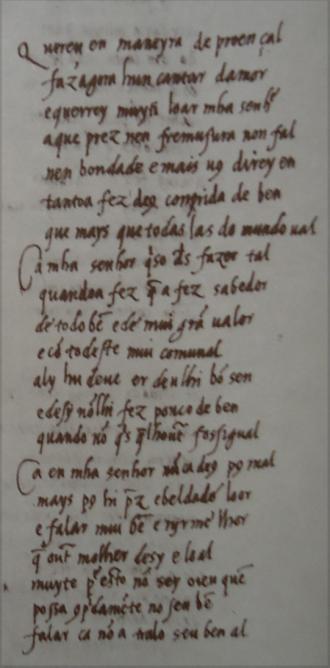 Quereu en maneyra de proençal
fazagora hun cantar damor
equerrey muytꝭ loar mha senhʳ
aque prez nen fremusura non fal
nen bondade emais uꝯ direy en
tantoa fez deꝯ comprida de ben
que mays que todas las do mundo ual
Ca mha senhor q̇so dš fazer tal
quandoa fez q̄ a fez sabedor
de todo bē e de mui grā ualor
e cō todeste mui comunal
aly hu deue er deulhi bō sen
e desy nōlhi fez pouco de ben
quando nō q̇s q̄lhout̄ fossigual
Ca en mha senhor nūca deꝯ pꝯ mal
mays pꝯ hi p̄z ebeldade loor
e falar mui bē e rijr melhor
q̄ out̄ molher desy e leal
muyte p̄ esto nō sey oieu quē
possa cōpdamēte no seu bē
falar ca nō a tralo seu ben al